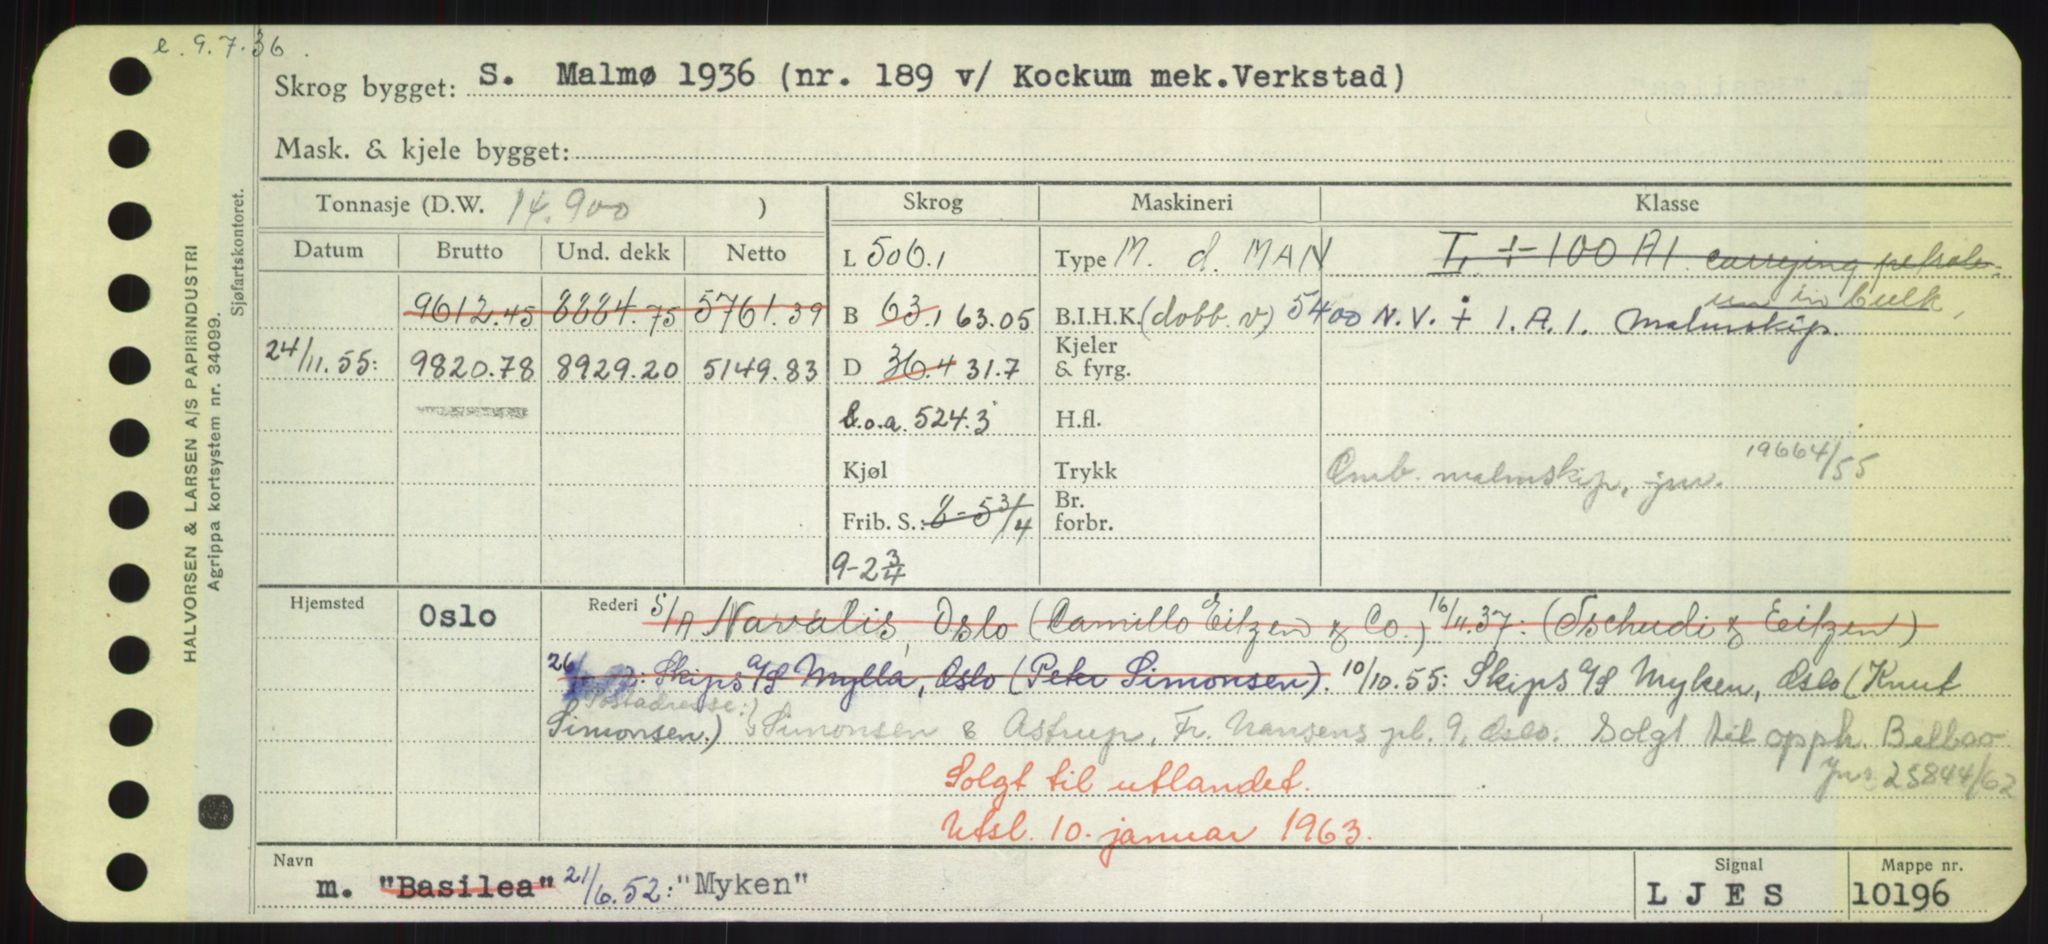 e. 9.7.36.
Skrog bygget: S. Malmø 1936 (nr. 189 v/ Kockum mek.Verkstad)
Mask. & kjele bygget:
HALVORSEN & LARSEN A/S PAPIRINDUSTRI
Agrippa kortsystem nr. 34099.
Sjøfartskontoret.
Tonnasje (D.W. 14.900 ) Skrog Maskineri Klasse
Datum Brutto Und. dekk Netto L 506.1 Type M. d. MAN L + 100 A1 carrying petrole-
um in bulk,
9612.45 8884.75 5761.39 B 63.1 63.05 B.I.H.K. (dobb. v) 5400 N.V. + 1.A.1. Malmskip.
24/11.55: 9820.78 8929.20 5149.83 D 36.4 31.7 Kjeler & fyrg.
L.o.a. 524.3 H.fl.
Kjøl Trykk Omb. malmskip, jnr. 19664/55
Frib. S.: 8-5 3/4 Br. forbr.
9-2 3/4
Hjemsted Oslo Rederi S/A Navalis, Oslo (Camillo Eitzen & Co.) 16/11.37: (Tschudi & Eitzen)
26/ Skips a/s Mylla, Oslo (Peter Simonsen). 10/10.55: Skips a/s Myken, Oslo (Knut
Postadresse:)
Simonsen.) Simonsen & Astrup, Fr. Nansens pl. 9, Oslo. Solgt til opph. Bilbao
jnr. 25844/62
Solgt til utlandet.
Utsl. 10. januar 1963.
Navn Signal Mappe nr.
m. "Basilea" 21/6.52: "Myken" LJES 10196